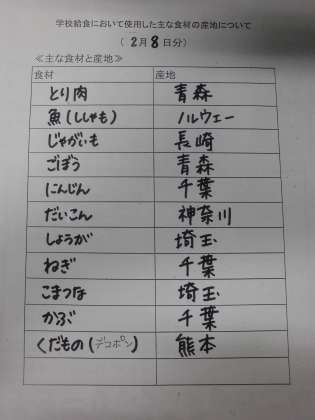 学校給食において使用した主な食材の産地について
(2月8日分)
≪主な食材と産地≫
食材 産地
とり肉 青森
魚(ししゃも) ノルウェー
じゃがいも 長崎
ごぼう 青森
にんじん 千葉
だいこん 神奈川
しょうが 埼玉
ねぎ 千葉
こまつな 埼玉
かぶ 千葉
くだもの(デコポン) 熊本